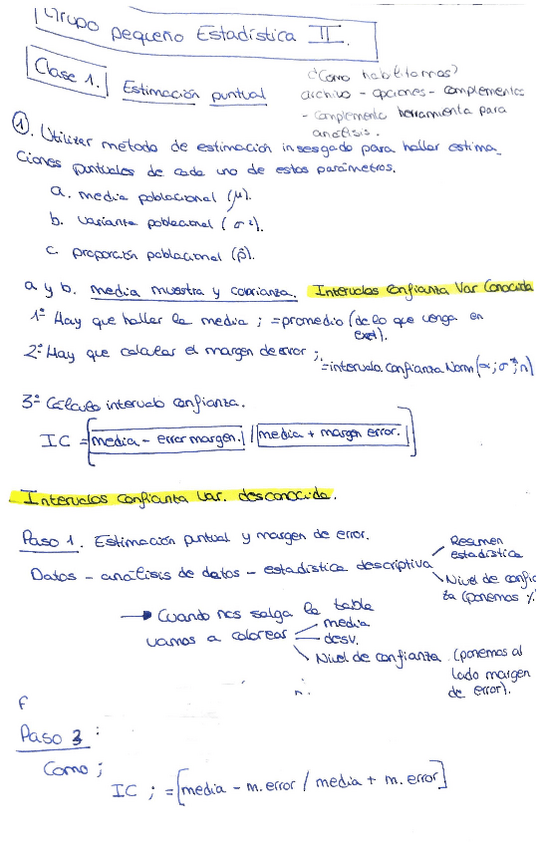 Grupo pequeño Estadística II.
Clase 1. Estimación puntual
¿Como habilitamos?
archivo - opciones - complementos
- complemento herramienta para
análisis.
①. Utilizar método de estimación insesgado para hallar estima_
ciones puntuales de cada uno de estos parámetros.
a. media poblacional (μ).
b. varianta poblacional (σ²).
c. proporción poblacional (p̂).
a y b. media muestra y covarianza. Intervalos Confianza Var Conocida
1º Hay que hallar la media ; =promedio (de lo que venga en
excel).
2º Hay que calcular el margen de error ;
=intervalo.confianza.Norm(α;σ;n)
3º Cálculo intervalo confianza.
IC = [media - error margen. / media + margen error.]
Intervalos confianta var. desconocida.
Paso 1. Estimación puntual y margen de error.
Datos - análisis de datos - estadística descriptiva
Resumen
estadística
Nivel de confia
ta (ponemos %
→ Cuando nos salga la tabla
vamos a colorear
media
desv.
Nivel de confianza (ponemos al
lado margen
de error).
n.
f
Paso 3 :
Como ;
IC ; =[media - m.error / media + m.error]